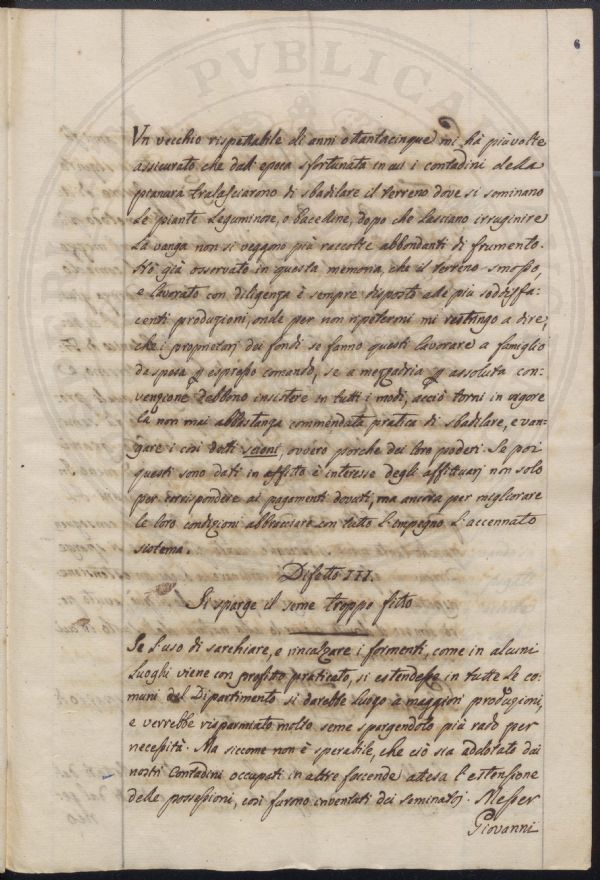 6
Un vecchio rispettabile di anni ottantacinque mi hà più volte
assicurato che dall'epoca sfortunata in cui i contadini della
pianura tralasciarono di sbadilare il terreno dove si seminano
le piante leguminose, o baccelline, dopo che lasciano irruginire
la vanga non si veggono più raccolte abbondanti di frumento.
Hò già osservato in questa memoria, che il terreno smosso,
e lavorato con diligenza è sempre disposto alle più soddisfa-
centi produzioni, onde per non ripetermi mi restringo a dire,
che i proprietarj dei fondi se fanno questi lavorare a famiglio
da spesa espresso comando, se a mezzadria assoluta con-
venzione debbono insistere in tutti i modi, acciò torni in vigore
la non mai abbastanza commendata pratica di sbadilare, e van-
gare i così detti scioni, ovvero porche dei loro poderi. Se poi
questi sono dati in affitto è interesse degli affittuarj non solo
per corrispondere ai pagamenti dovuti, ma ancora per migliorare
le loro condizioni abbracciare con tutto l'impegno l'accennato
sistema.
Difetto III.
Si sparge il seme troppo fitto
Se l'uso di sarchiare, e rincalzare i formenti, come in alcuni
luoghi viene con profitto praticato, si estendesse in tutte le co-
muni del Dipartimento si darebbe luogo a maggiori produzioni,
e verrebbe risparmiato molto seme spargendolo più rado per
necessità. Ma siccome non è sperabile, che ciò sia addotato dai
nostri Contadini occupati in altre faccende attesa l'estensione
delle possessioni, così furono inventati dei seminatoj. Messer
Giovanni